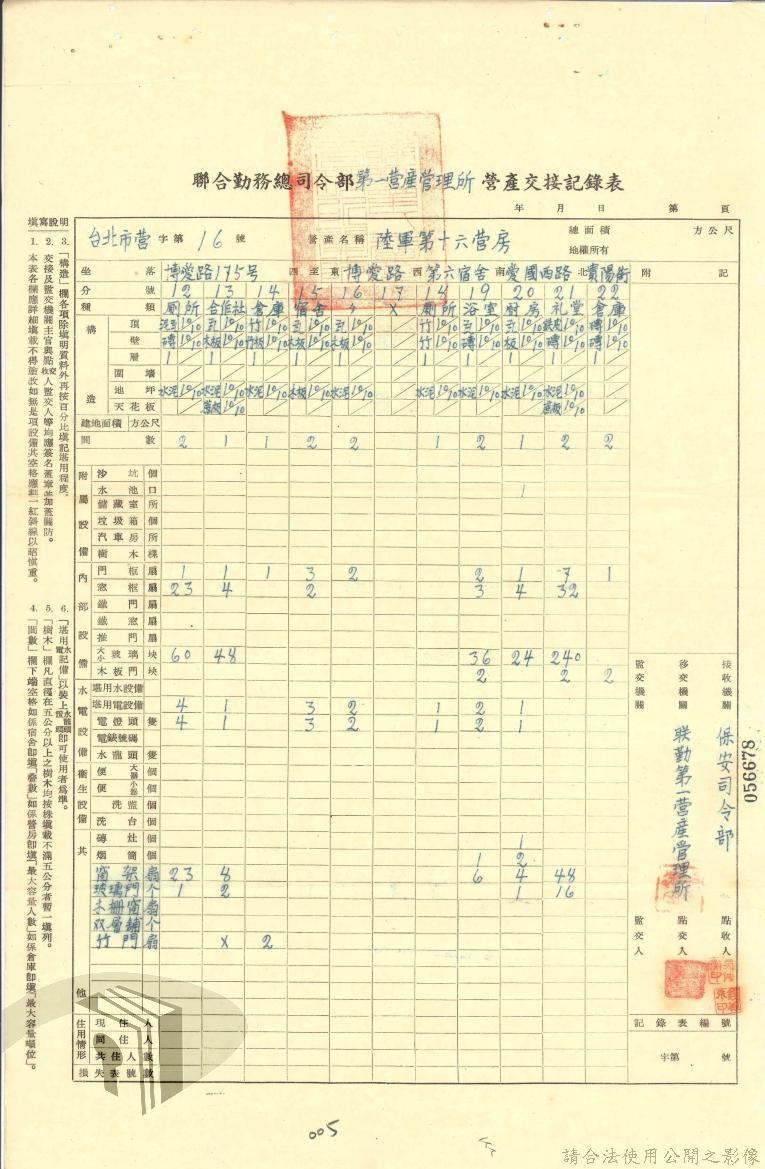 聯合勤務總司令部第一營產管理所 營產交接記錄表
年 月 日 第 頁
台北市营 字第 16 號 營產名稱 陸軍第十六营房 總面積 方公尺
地權所有
坐落 博愛路175号 四至 東 博愛路 西 第六宿舍 南 愛國西路 北 貴陽街 附記
分號 12 13 14 15 16 17 14 19 20 21 22
種類 厠所 合作社 倉庫 宿舍 〃 X 厠所 浴室 厨房 礼堂 倉庫
構造
頂
壁
層 1 1 1 1 1 1 1 1 1 1
圍墻
地坪 水泥10/10 水泥10/10 水泥10/10 木板10/10 木板10/10 水泥10/10 水泥10/10 水泥10/10 水泥10/10
天花板
建地面積 方公尺
間數 2 1 1 2 2 1 2 1 2 2
附屬設備
沙坑 個
水池 口 1
儲藏室 所
垃圾箱 個
汽車房 所
樹木 棵
內部設備
門框 扇 1 1 1 3 2 2 1 7 1
窓框 扇 23 4 2 3 4 32
鐵門 扇
鐵窓 扇
推門 扇
大小玻璃 块 60 48 36 24 240
木板門 块 2 2 2
水電設備
堪用水設備
堪用電設備 4 1 3 2 1 2 1
電燈頭 隻 4 1 3 2 1 2 1
電錶號碼
水龍頭 隻
衛生設備
大便器 個
小便器 個
洗盥 個
洗台 個
其他
磚灶 個 1
烟筒 個 1 2
窗架 扇 23 8 6 4 48
玻璃門 个 1 2 1 16
木柵窗 扇
双層鋪 个
竹門 扇 X 2
住用情形
現住人
同住人
共住人數
損失表號數
接收機關 保安司令部
移交機關 联勤第一营產管理所
監交機關
點收人
點交人
監交人
記錄表編號
字第 號
填寫說明
1. 本表各欄應詳細填載不得塗改如無是項設備其空格應劃一紅斜線以昭愼重。
2. 交接及監交機關主官與點收交人監交人等均應簽名蓋章並加蓋關防。
3. 「構造」欄各項除填明質料外再按百分比填記堪用程度。
4. 「間數」欄下端空格如係宿舍卽填「疊數」如係營房卽填「最大容量人數」如係倉庫卽填「最大容量噸位」。
5. 「樹木」欄凡直徑在五公分以上之樹木均按株填載不滿五公分者暫一填列。
6. 「堪用水電設備」以裝上水龍頭電燈頭卽可使用者為準。
056678
005
請合法使用公開之影像